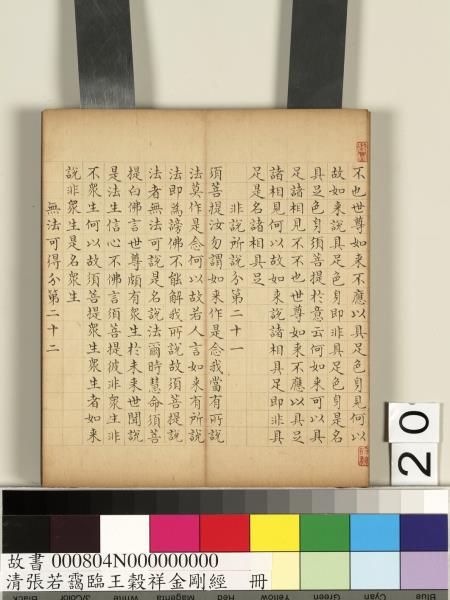 不也世尊如來不應以具足色身見何以
故如來說具足色身即非具足色身是名
具足色身須菩提於意云何如來可以具
足諸相見不不也世尊如來不應以具足
諸相見何以故如來說諸相具足即非具
足是名諸相具足
非說所說分第二十一
須菩提汝勿謂如來作是念我當有所說
法莫作是念何以故若人言如來有所說
法即為謗佛不能解我所說故須菩提說
法者無法可說是名說法爾時慧命須菩
提白佛言世尊頗有眾生於未來世聞說
是法生信心不佛言須菩提彼非眾生非
不眾生何以故須菩提眾生眾生者如來
說非眾生是名眾生
無法可得分第二十二
20
故書 000804N000000000
清張若靄臨王穀祥金剛經 冊
Black 3/Color White Magenta Red Yellow Green Cyan Blue